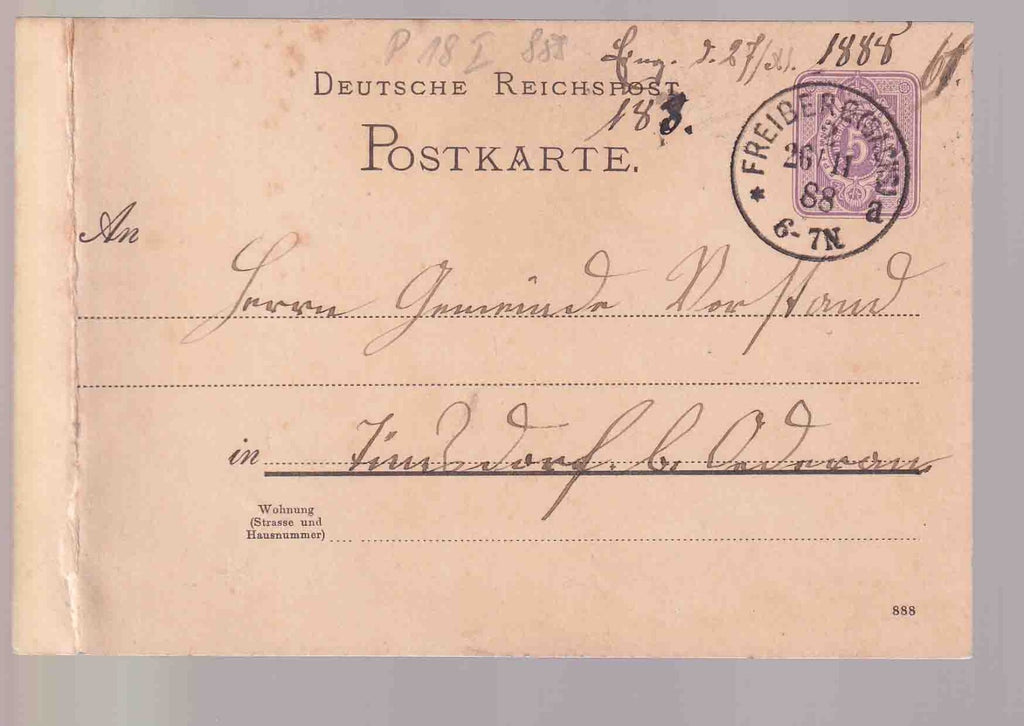 P 18 I 888
Eing. d. 27/11. 1888
DEUTSCHE REICHSPOST.
183.
POSTKARTE.
5
* FREIBERG (SACHS) a
26 11
88
6-7N
An
Herrn Gemeinde Vorstand
in b. Oederan
Wohnung
(Strasse und
Hausnummer)
888